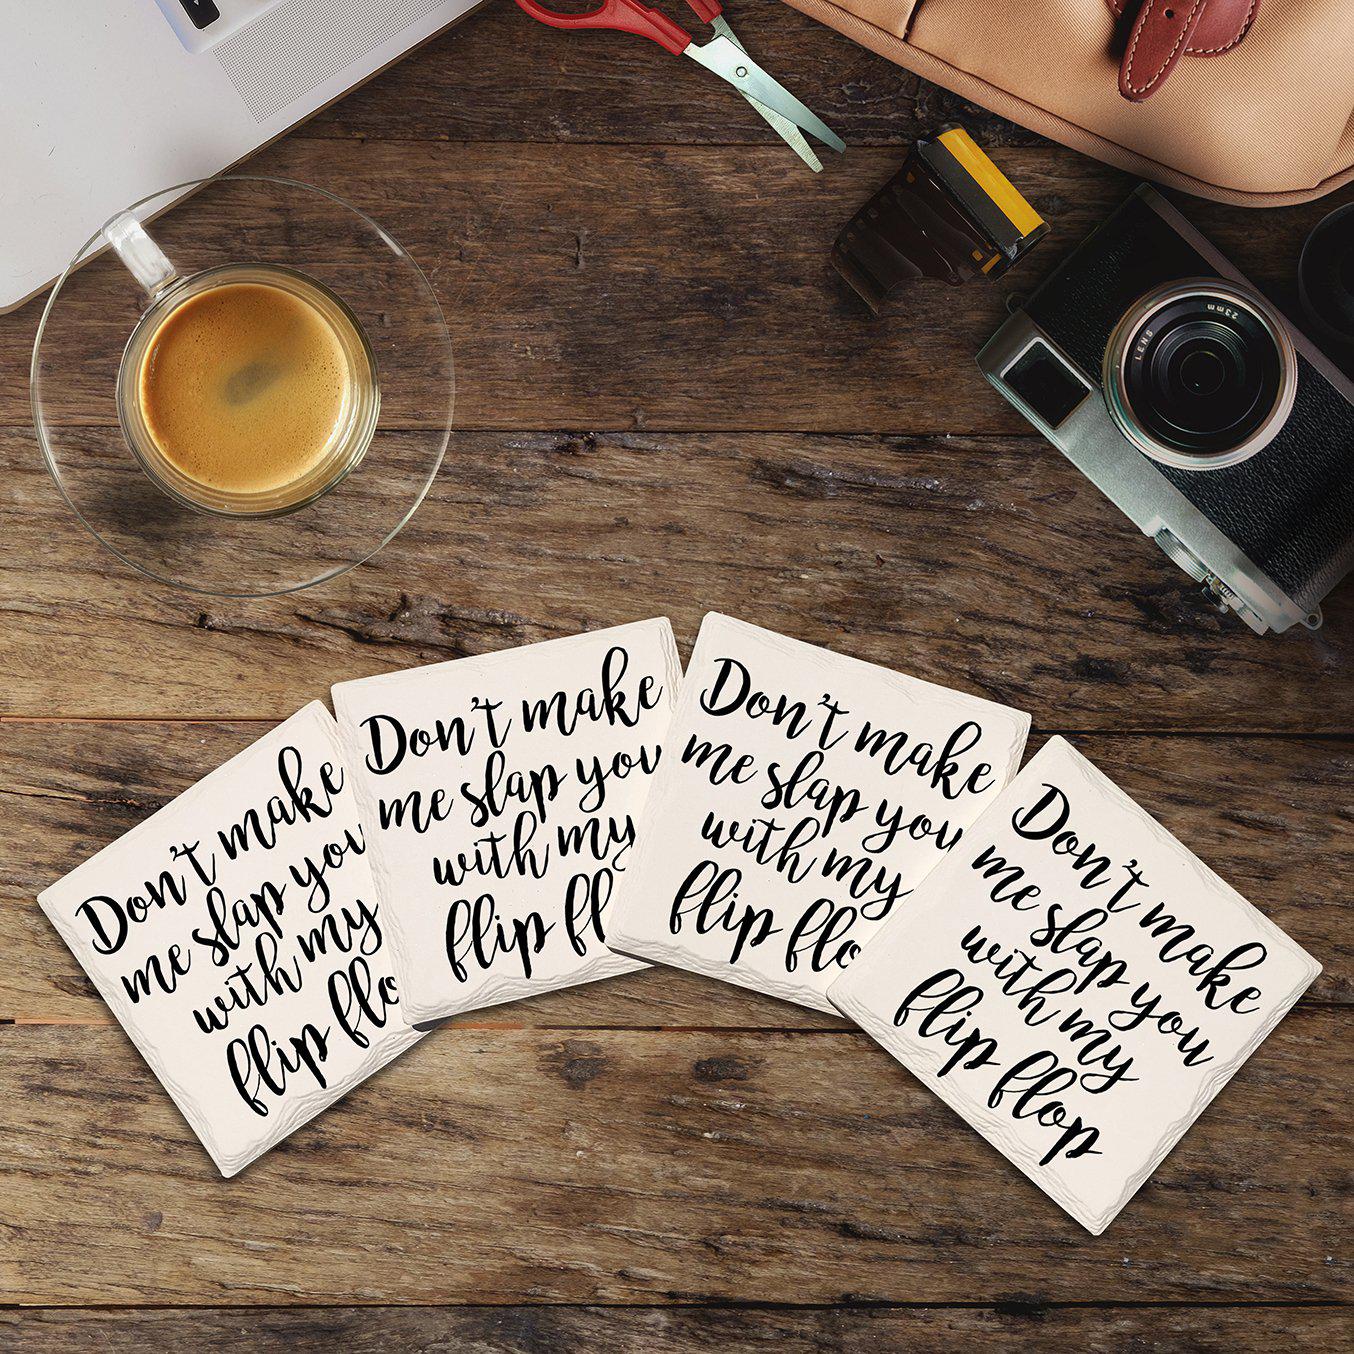 LENS
23mm
Don't make
me slap you
with my
flip flo
Don't make
me slap you
with my
flip fl
Don't make
me slap you
with my
flip flo
Don't make
me slap you
with my
flip flop